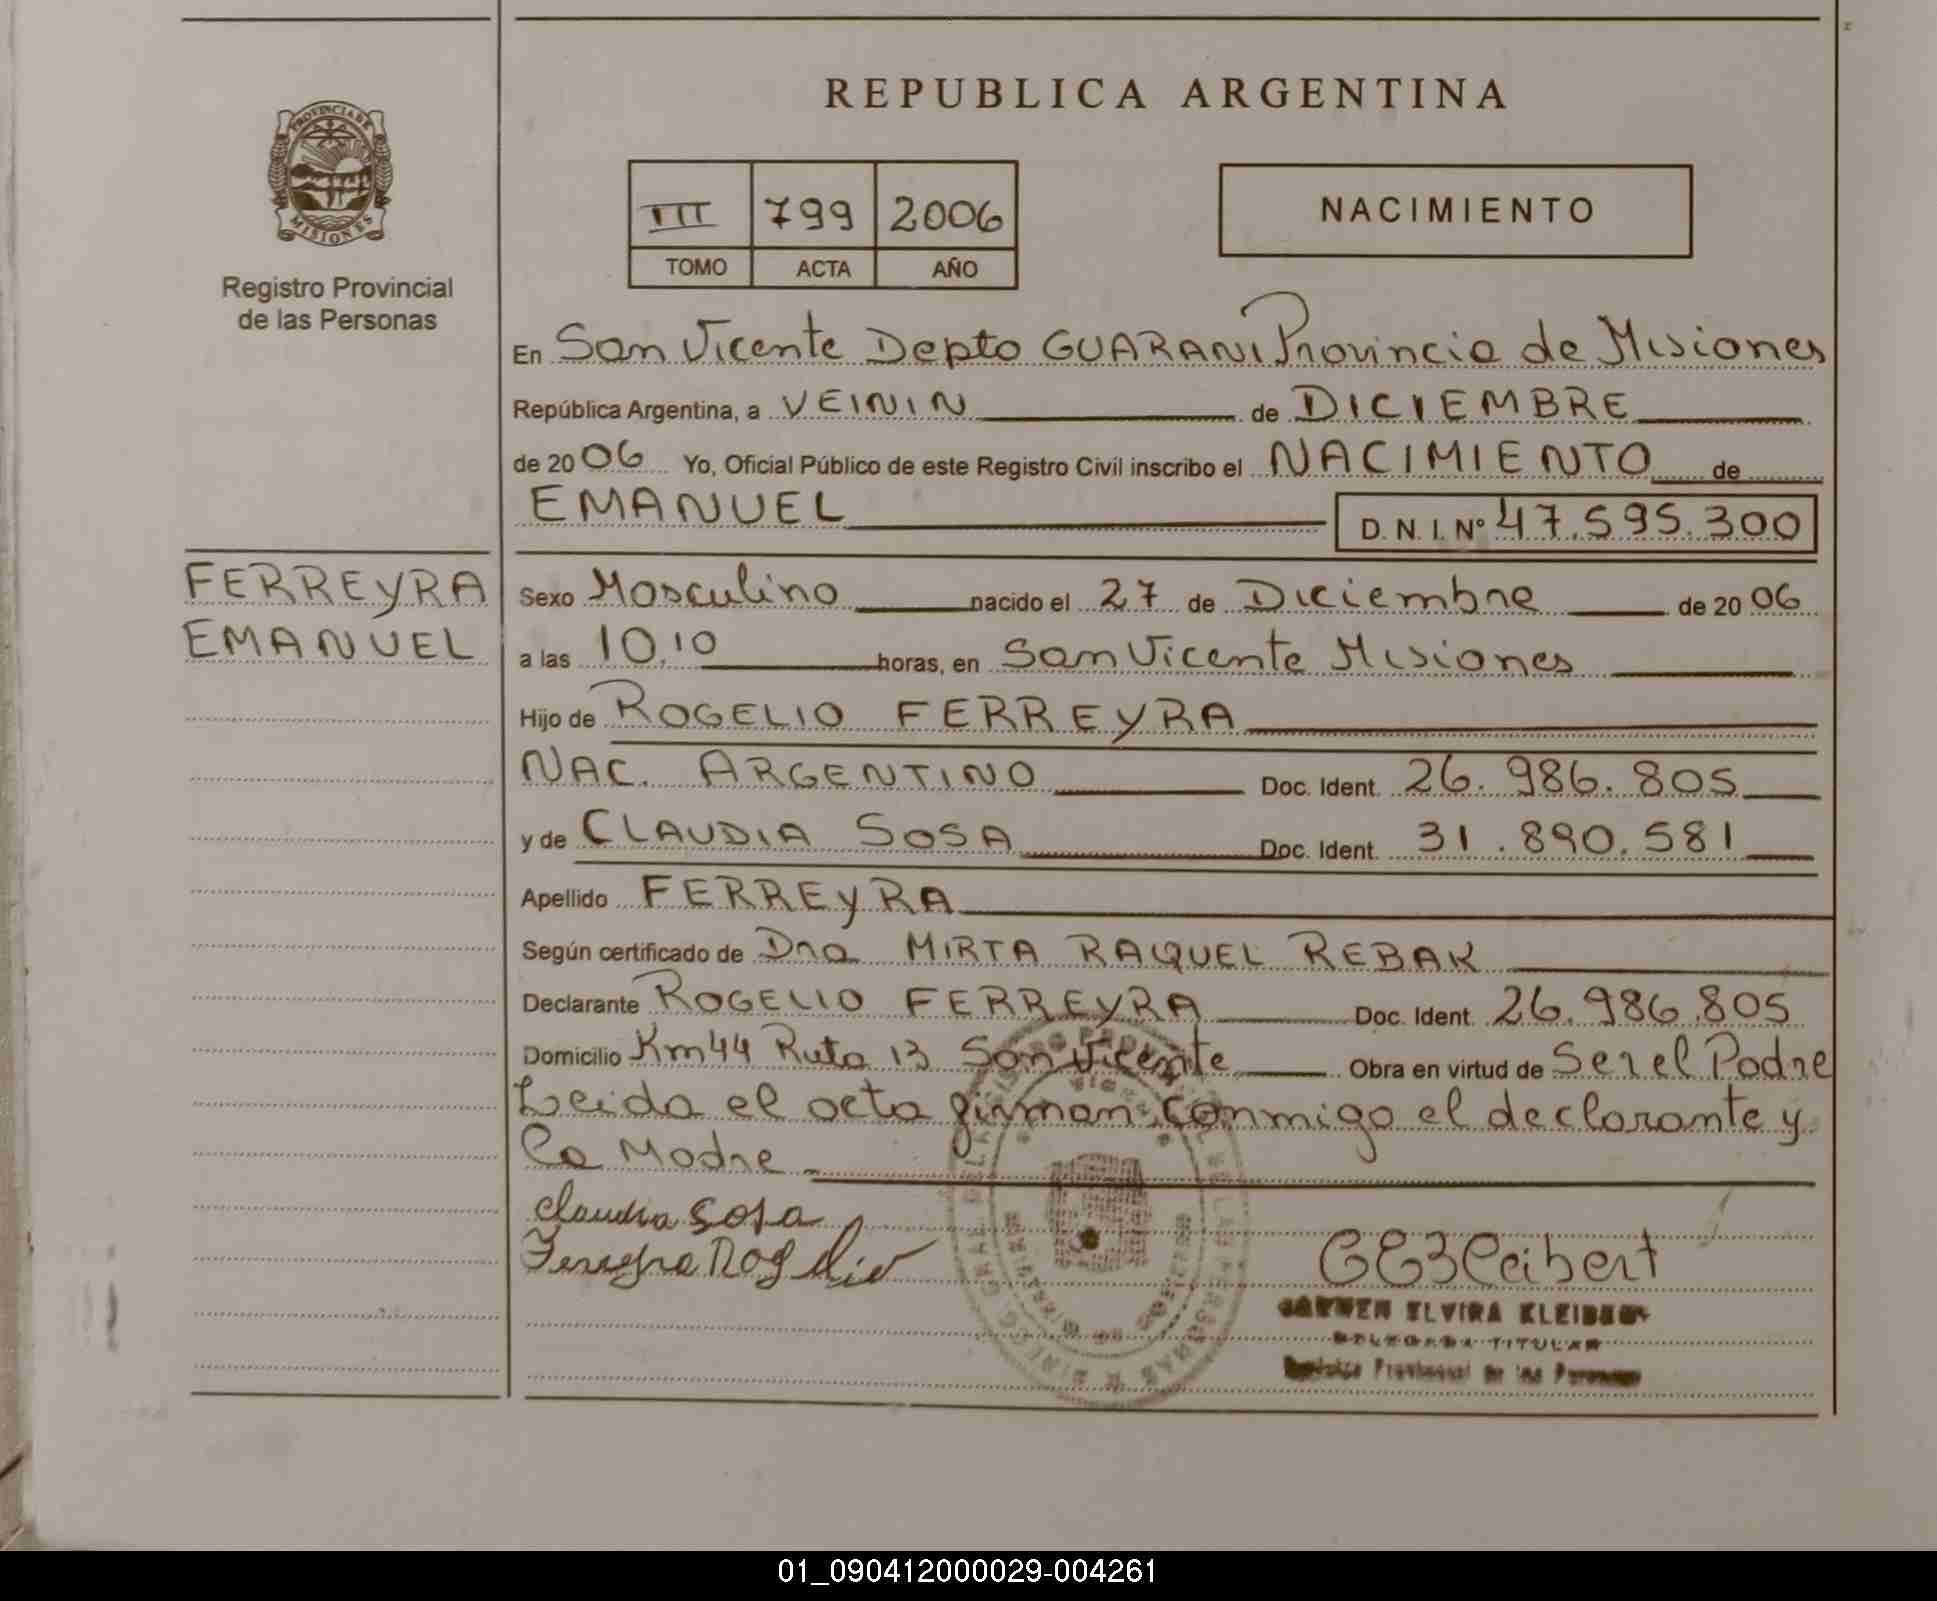 REPUBLICA ARGENTINA
PROVINCIA DE
MISIONES
Registro Provincial
de las Personas
III 799 2006
TOMO ACTA AÑO
NACIMIENTO
En San Vicente Depto GUARANI Provincia de Misiones
República Argentina, a VEININ de DICIEMBRE
de 2006 Yo, Oficial Público de este Registro Civil inscribo el NACIMIENTO de
EMANUEL D. N. I. Nº 47.595.300
FERREYRA
EMANUEL
Sexo Masculino nacido el 27 de Diciembre de 2006
a las 10,10 horas, en San Vicente Misiones
Hijo de ROGELIO FERREYRA
NAC. ARGENTINO Doc. Ident. 26.986.805
y de CLAUDIA SOSA Doc. Ident. 31.890.581
Apellido FERREYRA
Según certificado de Dra MIRTA RAQUEL REBAK
Declarante ROGELIO FERREYRA Doc. Ident. 26.986.805
Domicilio Km44 Ruta 13 San Vicente Obra en virtud de Ser el Padre
Leida el acta firman conmigo el declarante y
la Madre
Claudia Sosa
Ferreyra Rogelio
CARMEN ELVIRA KLEIBERT
DELEGADA TITULAR
Registro Provincial de las Personas
01_090412000029-004261